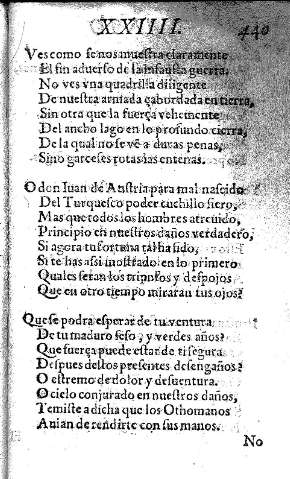 XXIIII. 440
Ves como se nos muestra claramente
El fin aduerso de la infausta guerra,
No ves vna quadrilla diligente
De nuestra armada çabordada en tierra,
Sin otra que la fuerça vehemente
Del ancho lago en lo profundo cierra,
De la qual no se vè a duras penas,
Sino garceses rotas las entenas.
O don Iuan de Austria para mal nascido
Del Turquesco poder cuchillo fiero,
Mas que todos los hombres atreuido,
Principio en nuestros daños verdadero,
Si agora tu fortuna tal ha sido,
Si te has assi mostrado en lo primero
Quales seran los triunfos y despojos
Que en otro tiempo miraran tus ojos?
Que se podra esperar de tu ventura
De tu maduro seso, y verdes años?
Que fuerça puede estar de ti segura
Despues destos presentes desengaños?
O estremo de dolor y desuentura.
O cielo conjurado en nuestros daños,
Temiste a dicha que los Othomanos
Auian de rendirte con sus manos.
No